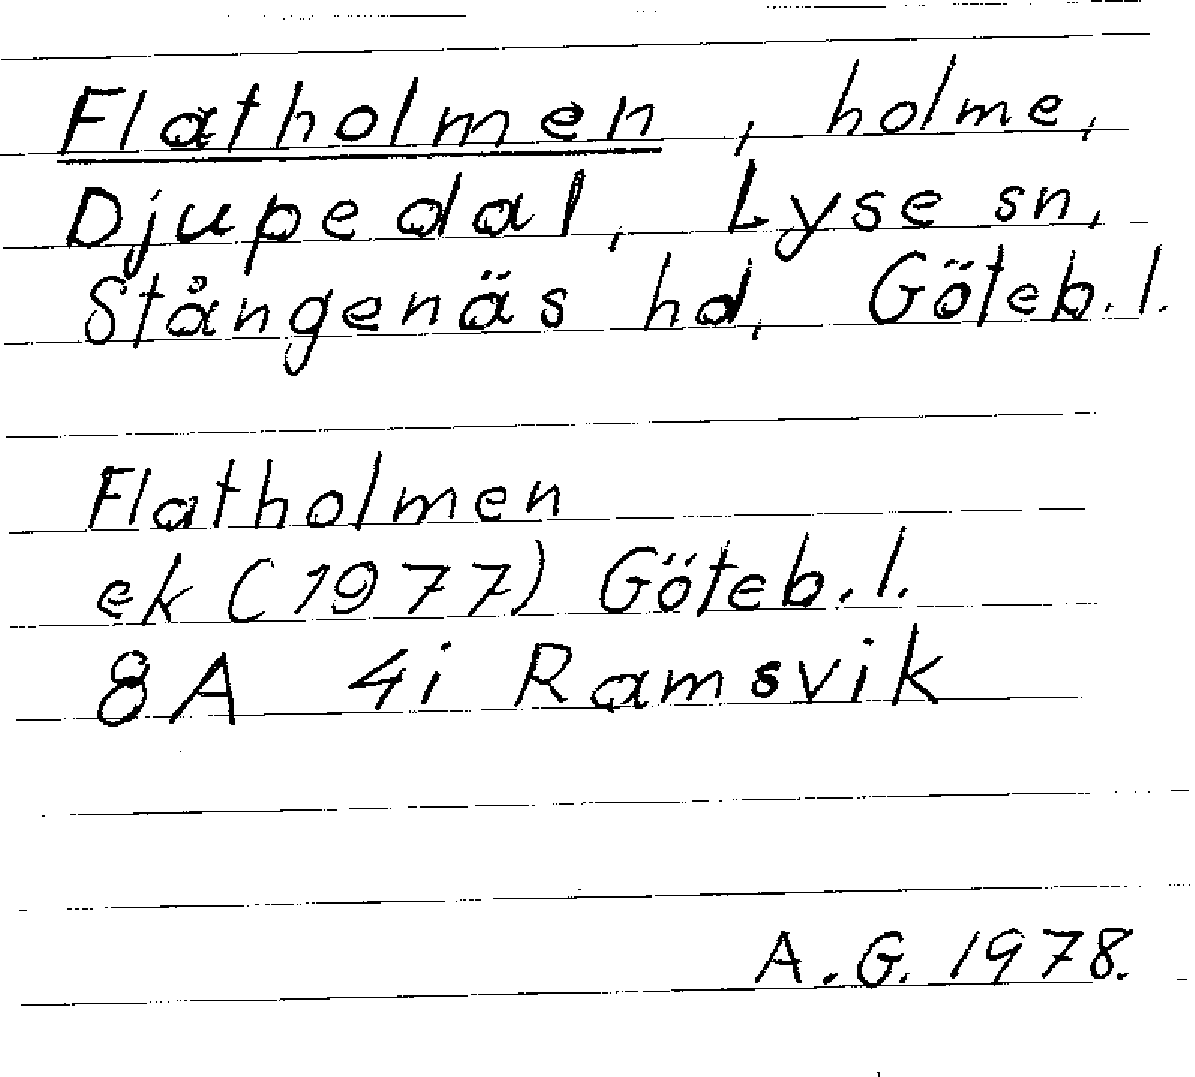 Flatholmen, holme,
Djupedal, Lyse sn,
Stångenäs hd, Göteb. l.
Flatholmen
ek (1977) Göteb. l.
8A 4i Ramsvik
A.G. 1978.